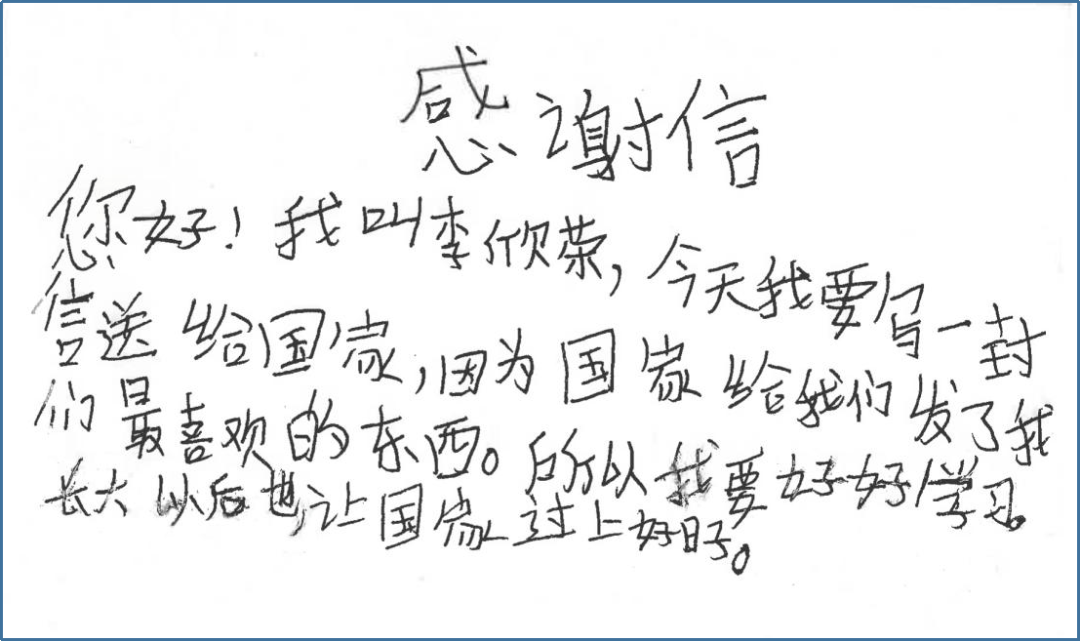 感谢信
您好！我叫李欣荣，今天我要写一封
信送给国家，因为国家给我们发了我
们最喜欢的东西。所以我要好好学习。
长大以后也让国家过上好日子。